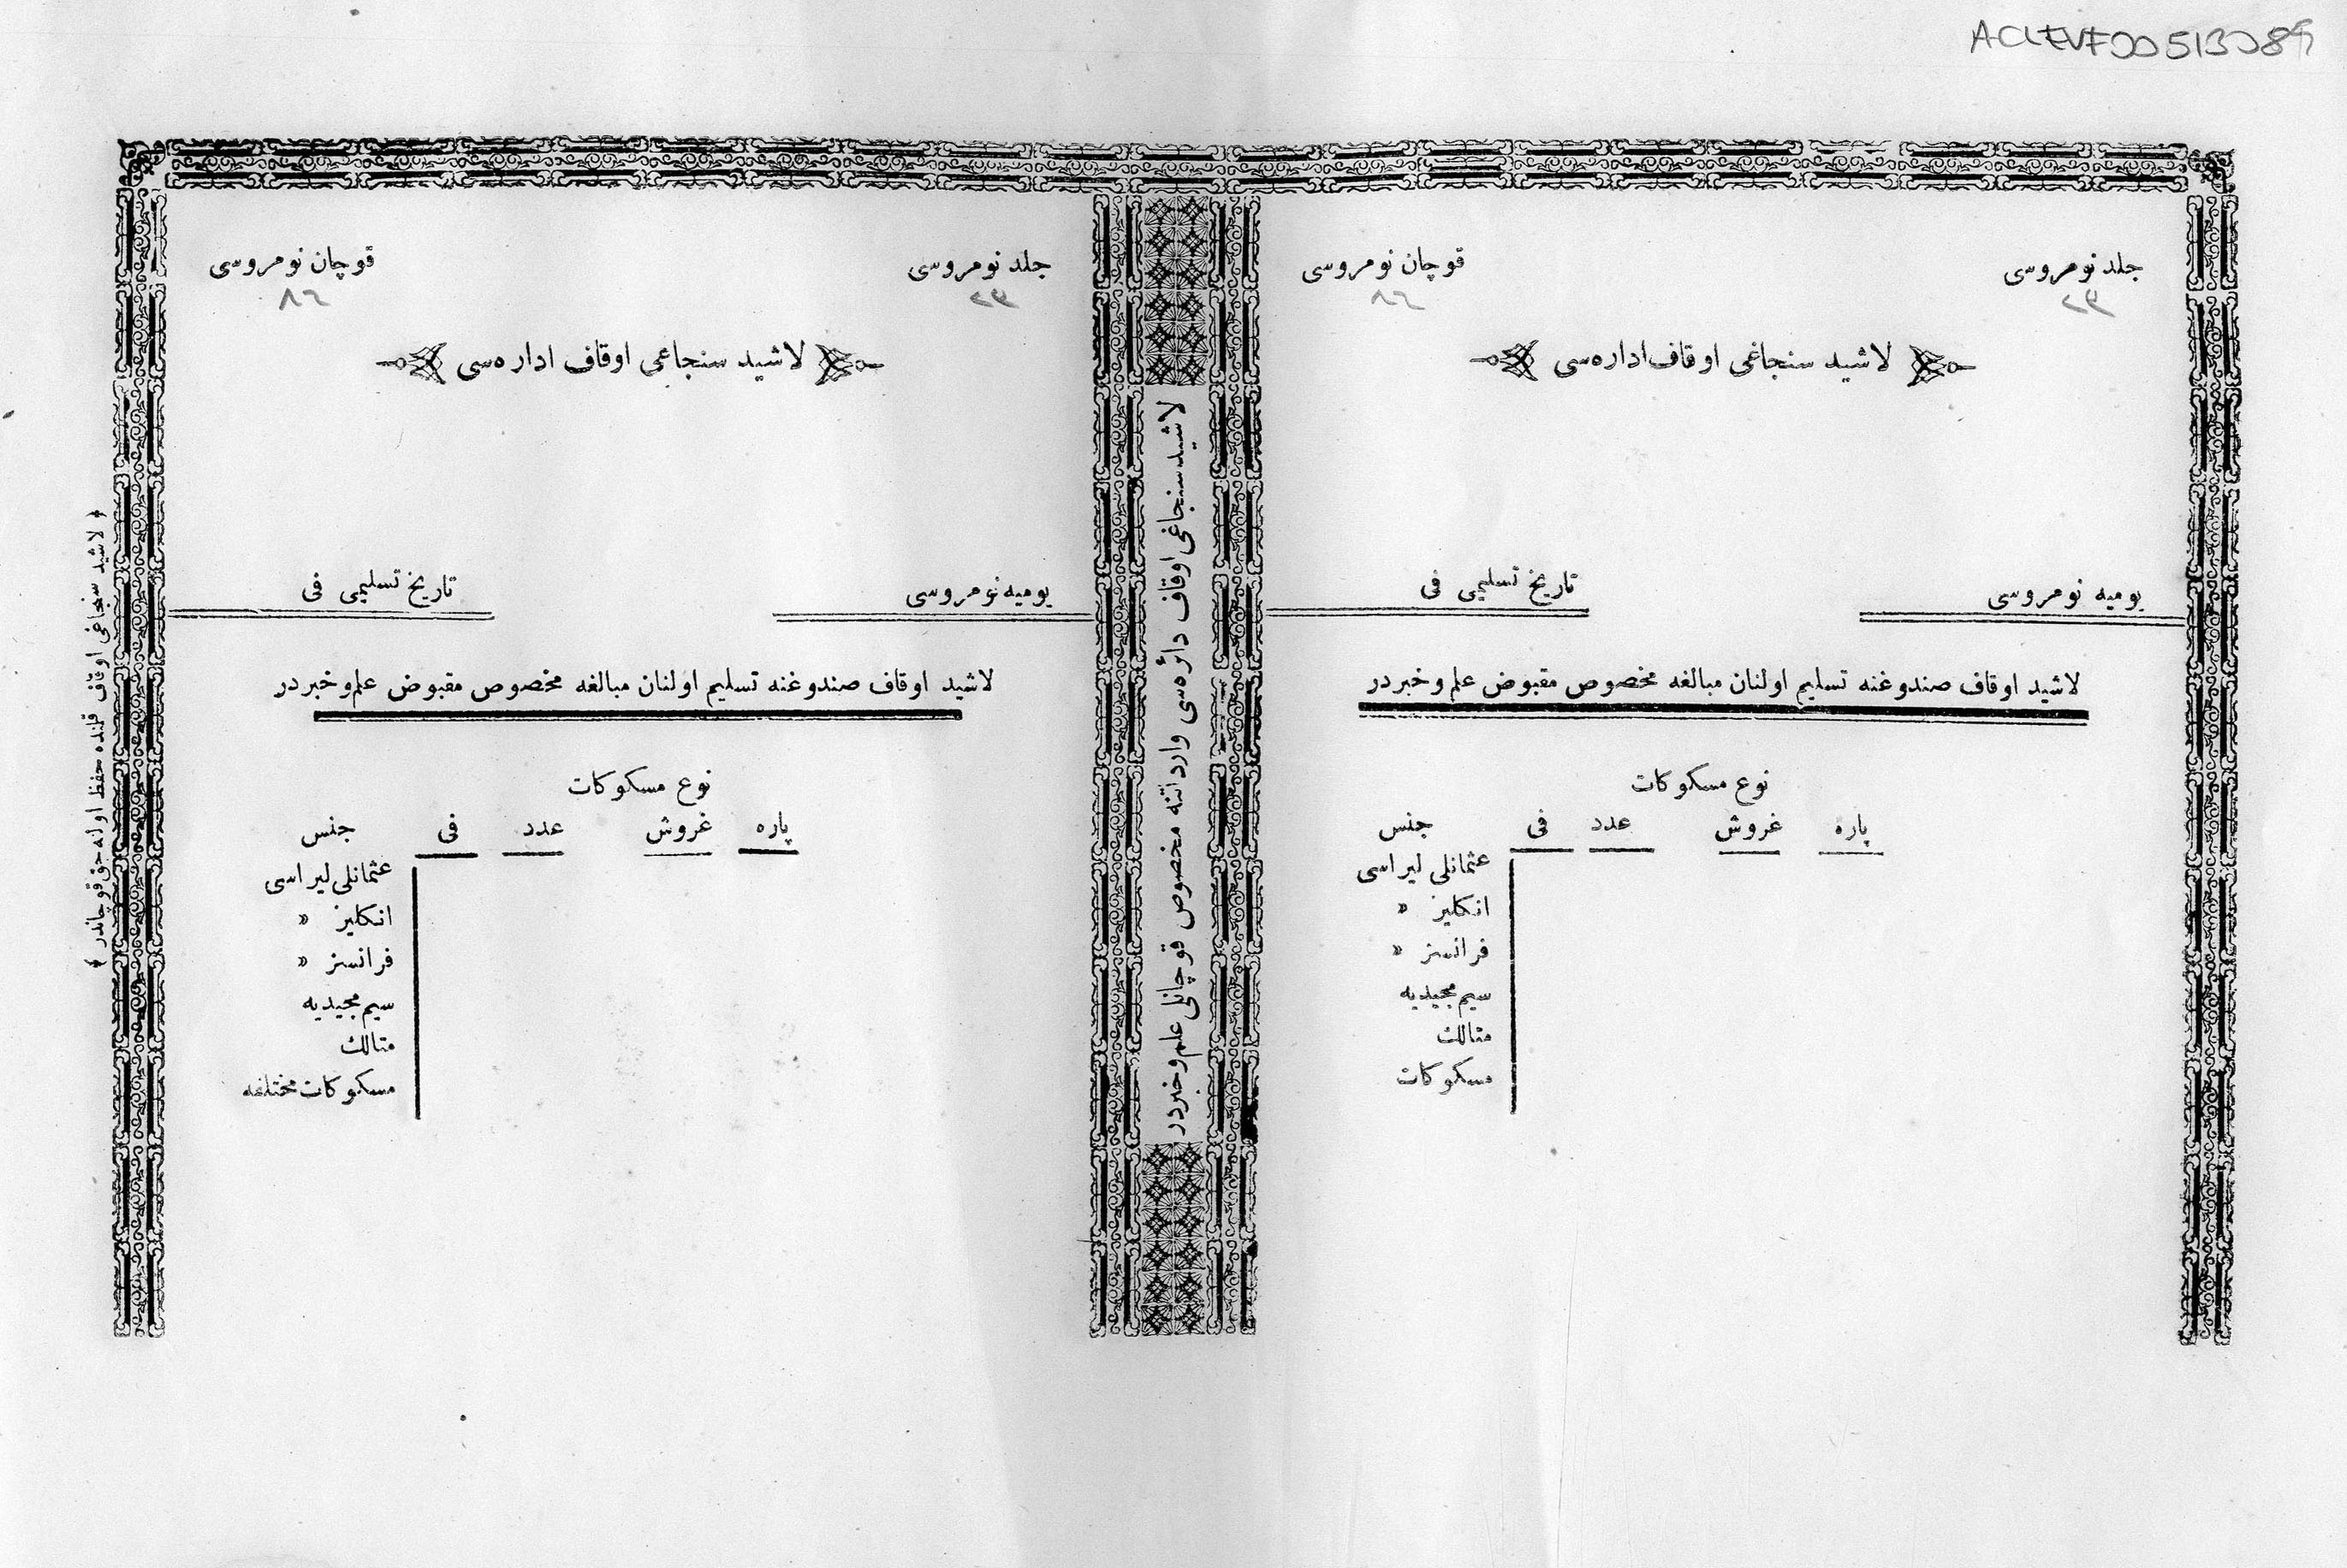 ACLEVF00513089
جلد نومروسی
٢٣
قوچان نومروسی
٨٦
لاشید سنجاغی اوقاف اداره‌سی
یومیه نومروسی
تاریخ تسلیمی فی
لاشید اوقاف صندوغنه تسلیم اولنان مبالغه مخصوص مقبوض علم وخبردر
نوع مسکوکات
پاره غروش عدد فی جنس
عثمانلی لیراسی
انکلیز »
فرانسز »
سیم مجیدیه
متالك
مسکوکات
لاشید سنجاغی اوقاف دائره‌سی وارداتنه مخصوص قوچانلی علم وخبردر
جلد نومروسی
٢٣
قوچان نومروسی
٨٦
لاشید سنجاغی اوقاف اداره‌سی
یومیه نومروسی
تاریخ تسلیمی فی
لاشید اوقاف صندوغنه تسلیم اولنان مبالغه مخصوص مقبوض علم وخبردر
نوع مسکوکات
پاره غروش عدد فی جنس
عثمانلی لیراسی
انکلیز »
فرانسز »
سیم مجیدیه
متالك
مسکوکات مختلفه
﴿ لاشید سنجاغی اوقاف قلنده حفظ اوله‌جق قوچاندر ﴾